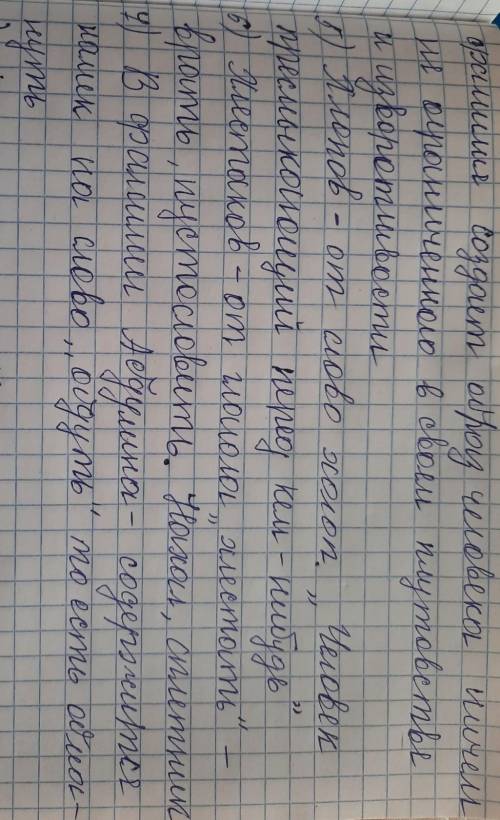 фамилия создает образ человека ничем
не ограниченного в своем плутовстве
и изворотливости
5) Хлопов - от слово холоп. „Человек
пресмыкающий перед кем-нибудь"
6) Хлестаков - от глагола „хлестать" -
врать, пустословить. Нахал, сплетник
7) В фамилии Абдулина - содержится
намек на слово „обдуть" то есть обма-
нуть